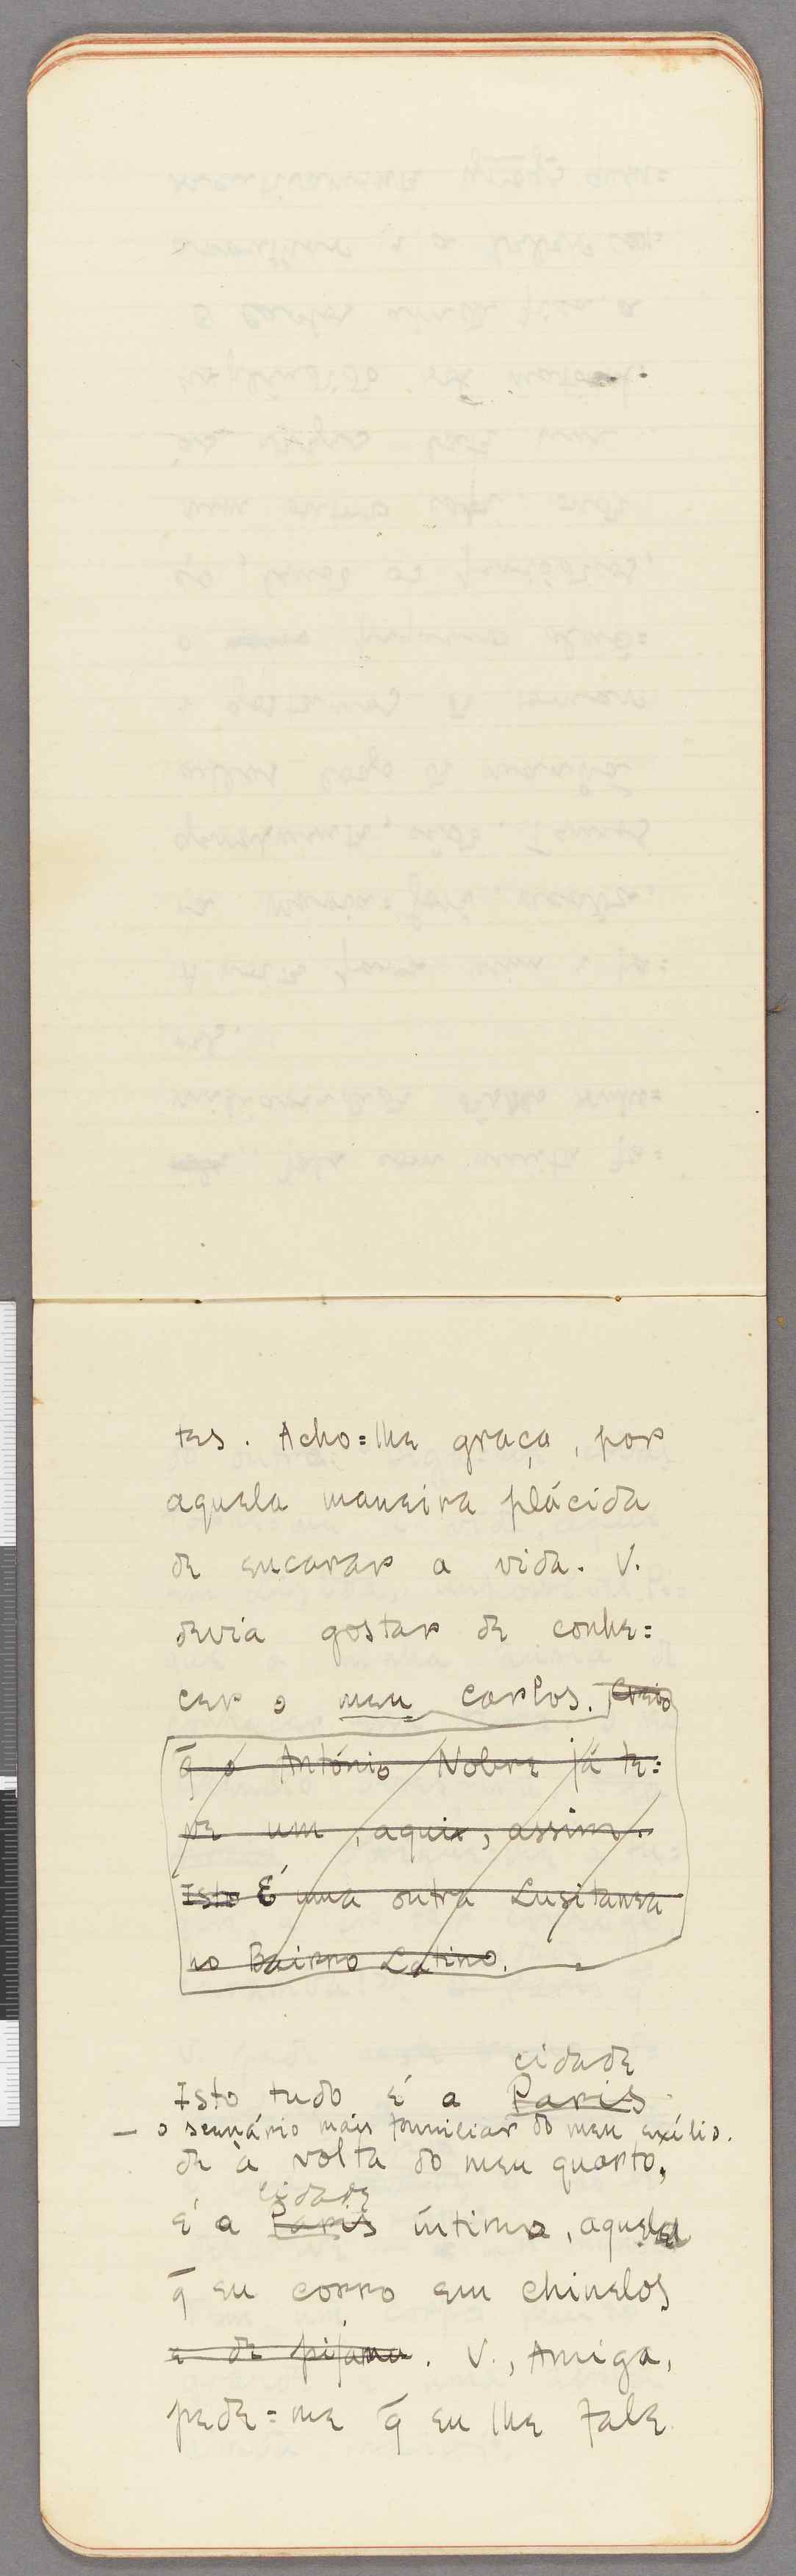 tes. Acho=lhe graça, por
aquela maneira plácida
de encarar a vida. V.
devia gostar de conhe=
cer o meu Carlos. Creio
q̄ o António Nobre já te=
ve um, aqui, assim.
Isto É uma outra Lusitanea
no Bairro Latino.
cidade
Isto tudo é a Paris
— o scenário mais familiar do meu exílio.
de à volta do meu quarto,
cidade
é a Paris íntima, aquela
q̄ eu corro em chinelos
e de pijama. V., Amiga,
pede=me q̄ eu lhe fale